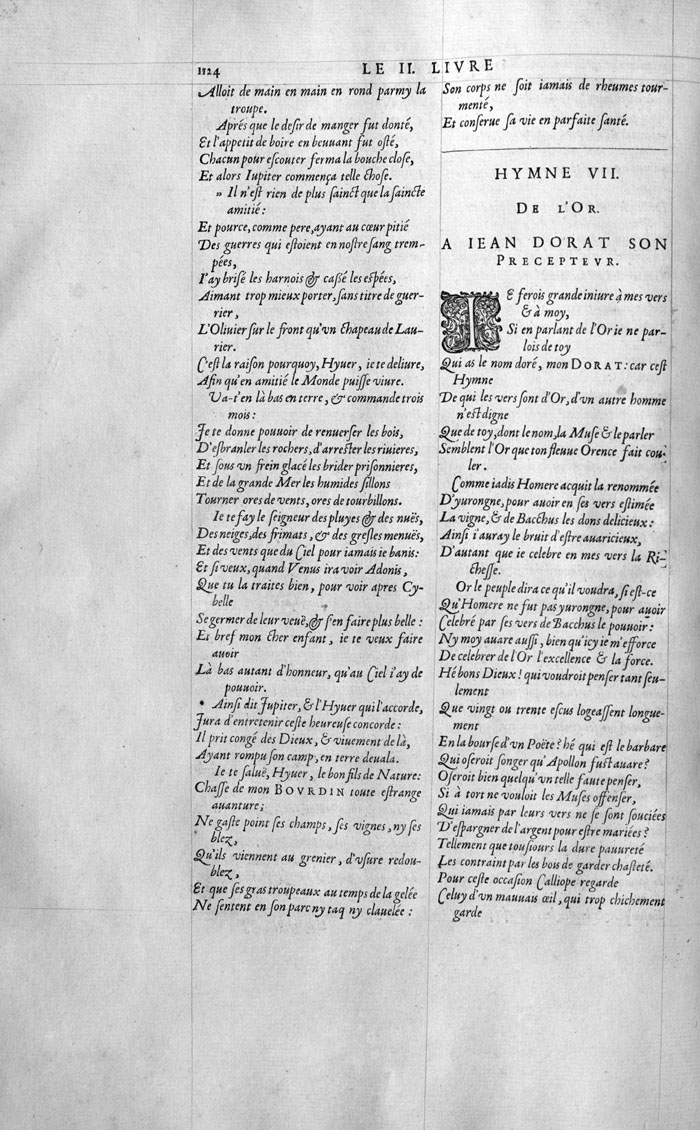 1124
LE II. LIVRE
Alloit de main en main en rond parmy la
troupe.
Aprés que le desir de manger fut donté,
Et l'appetit de boire en beuuant fut osté,
Chacun pour escouter ferma la bouche close,
Et alors Iupiter commença telle chose.
» Il n'est rien de plus sainct que la saincte
amitié:
Et pource, comme pere, ayant au cœur pitié
Des guerres qui estoient en nostre sang trem-
pées,
I'ay brisé les harnois & cassé les espées,
Aimant trop mieux porter, sans titre de guer-
rier,
L'Oliuier sur le front qu'vn Chapeau de Lau-
rier.
C'est la raison pourquoy, Hyuer, ie te deliure,
Afin qu'en amitié le Monde puisse viure.
Va-t'en là bas en terre, & commande trois
mois:
Je te donne pouuoir de renuerser les bois,
D'esbranler les rochers, d'arrester les riuieres,
Et sous vn frein glacé les brider prisonnieres,
Et de la grande Mer les humides sillons
Tourner ores de vents, ores de tourbillons.
Ie te fay le seigneur des pluyes & des nuës,
Des neiges, des frimats, & des gresles menuës,
Et des vents que du Ciel pour iamais ie banis:
Et si veux, quand Venus ira voir Adonis,
Que tu la traites bien, pour voir apres Cy-
belle
Se germer de leur veuë, & s'en faire plus belle:
Et bref mon cher enfant, ie te veux faire
auoir
Là bas autant d'honneur, qu'au Ciel i'ay de
pouuoir.
Ainsi dit Jupiter, & l'Hyuer qui l'accorde,
Jura d'entretenir ceste heureuse concorde:
Il prit congé des Dieux, & viuement de là,
Ayant rompu son camp, en terre deuala.
Ie te saluë, Hyuer, le bon fils de Nature:
Chasse de mon BOVRDIN toute estrange
auanture;
Ne gaste point ses champs, ses vignes, ny ses
blez,
Qu'ils viennent au grenier, d'vsure redou-
blez,
Et que ses gras troupeaux au temps de la gelée
Ne sentent en son parc ny taq ny clauelée:
Son corps ne soit iamais de rheumes tour-
menté,
Et conserue sa vie en parfaite santé.
HYMNE VII.
DE L'OR.
A IEAN DORAT SON
PRECEPTEVR.
IE ferois grande iniure à mes vers
& à moy,
Si en parlant de l'Or ie ne par-
lois de toy
Qui as le nom doré, mon DORAT: car cest
Hymne
De qui les vers sont d'Or, d'vn autre homme
n'est digne
Que de toy, dont le nom, la Muse & le parler
Semblent l'Or que ton fleuue Orence fait cou-
ler.
Comme iadis Homere acquit la renommée
D'yurongne, pour auoir en ses vers estimée
La vigne, & de Bacchus les dons delicieux:
Ainsi i'auray le bruit d'estre auaricieux,
D'autant que ie celebre en mes vers la Ri-
chesse.
Or le peuple dira ce qu'il voudra, si est-ce
Qu'Homere ne fut pas yurongne, pour auoir
Celebré par ses vers de Bacchus le pouuoir:
Ny moy auare aussi, bien qu'icy ie m'efforce
De celebrer de l'Or l'excellence & la force.
Hé bons Dieux! qui voudroit penser tant seu-
lement
Que vingt ou trente escus logeassent longue-
ment
En la bourse d'vn Poëte? hé qui est le barbare
Qui oseroit songer qu'Apollon fust auare?
Oseroit bien quelqu'vn telle faute penser,
Si à tort ne vouloit les Muses offenser,
Qui iamais par leurs vers ne se sont souciées
D'espargner de l'argent pour estre mariées?
Tellement que tousiours la dure pauureté
Les contraint par les bois de garder chasteté.
Pour ceste occasion Calliope regarde
Celuy d'vn mauuais œil, qui trop chichement
garde